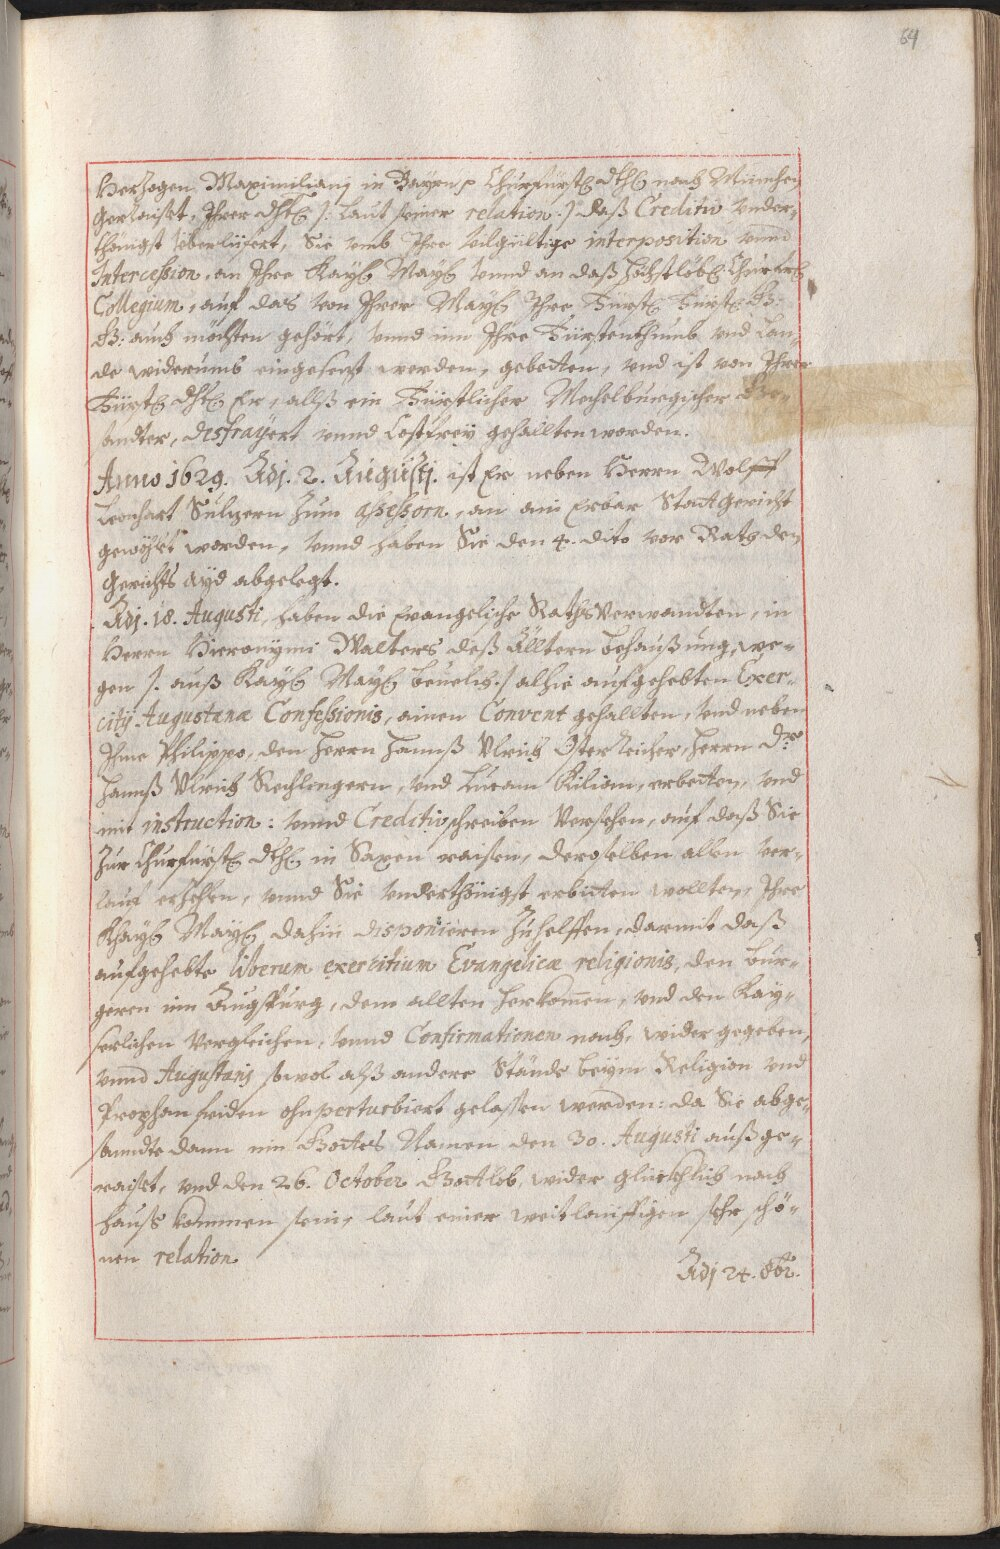 64
Herzogen Maximiliani in Bayrn p Churfürstl. Dhl. nach München
geraiset, Ihrer Dhl. /: laut seiner relation :/ daß Creditiv vnder-
thönigst überlüfert, Sie vmb Ihre vilgültige interposition vnnd
Intercession, an Ihre Kayl. Mayl. vnnd an daß Höchstlöbl. Churfrl.
Collegium, auf das von Ihrer Mayl. Ihre Fürstl. Fürstl. G:
G: auch möchten gehört, vnnd inn Ihre Fürstenthumb vnd Lan-
de widerumb eingesetzt werden, gebetten, vnd ist von Ihrer
Fürstl. Dhl. Er, allß ein Fürstlicher Mechelburgischer Ge-
sandter, desfrayert vnnd Costfrey gehallten worden.
Anno 1629. Adj. 2. Augusti. ist Er neben Herrn Wolff
Leonhart Sulzern zum assessorn, an ain Erbar Statt Gericht
gewöhlt worden, vnnd haben Sie den 4. dito vor Rath den
Gerichts Ayd abgelegt.
Adj. 18. Augusti, haben die Evangeliche RathsVerwandten, in
Herrn Hieronymi Walters deß Älltern behaußung, we-
gen /: auß Kayl. Mayl. beuelch :/ alhie aufgehebten Exer-
citij Augustanæ Confessionis, ainen Convent gehallten, vnd neben
Ihme Philippo, den Herrn Hannß Vlrich Österreicher, Herrn Dr.
Hannß Vlrich Rechlingern, vnd Lucam Kilian, erbetten, vnd
mit instruction: vnnd Creditivschreiben Versehen, auf daß Sie
zur Churfürstl. Dhl. in Saxen raisen, deroselben allen ver-
lauf erzehlen, vnnd Sie vnderthönigst erbitten wollten, Ihre
Khayl. Mayl. dahin disponieren zuhelffen, darmit daß
aufgehebte liberum exercitium Evangelicæ religionis, den bur-
geren inn Augspurg, dem allten herkom̅en, vnd den Kay-
serlichen Vergleichen, vnnd Confirmationen nach, wider gegeben,
vnnd Augustanj sowol alß andere Stände beym Religion vnd
Prophan friden ohnperturbiert gelassen werden: da Sie abge-
sanndte dann inn Gottes Namen den 30. Augusti außge-
raiset, vnd den 26. October Gottlob, wider glücklich nach
hauß kommen sein, laut einer weitläuffigen sehr schö-
nen relation.
Adj 24. 8br.